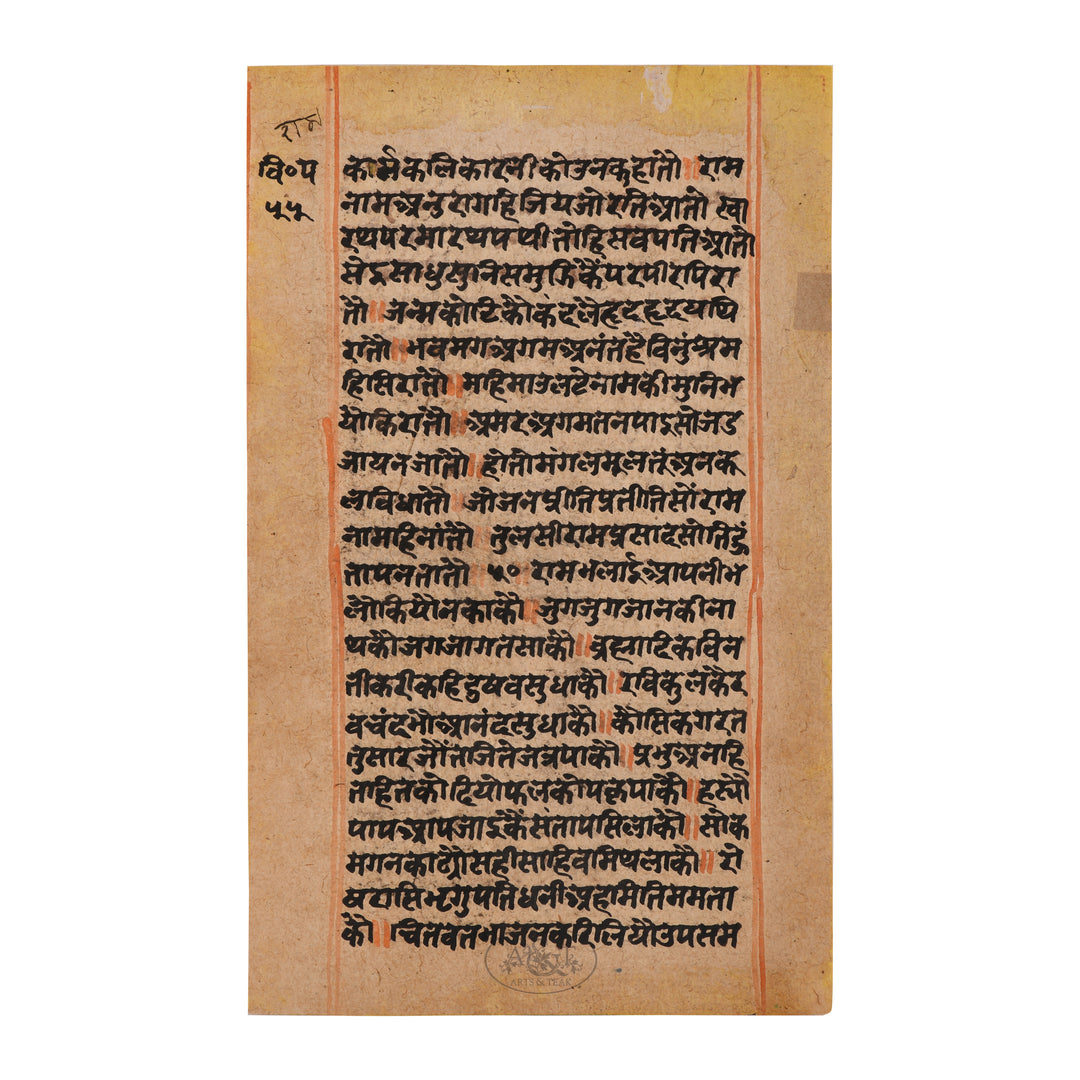 राम
वि०प
५५
कार्मकलिकारनीकोउनकहातौ॥राम
नामअनुरागहिजियजोरतिआतो स्वा
रथपरमारथपथीतोहिसबपतिआतो
सेइसाधुसुनिसमुझिकैंपरपीरपिरा
तौ॥जन्मकोटिकौकंदलैहृदहृदयथि
रातौ॥भवमगअगमअनंतहैबिनुंश्रम
हिसिरातौ॥महिमाउलटेनामकीमुनिभ
योकिरातौ॥अमरअगमतनपाइसोजड
जायनजातौ॥होतोमंगलमूलतूंअनकू
लविधातौ॥जोजनप्रीतिप्रतीतिसौंराम
नामहिनांतौ॥तुलसीरामप्रसादसोंतिहुं
तापनतातौ॥५०रामभलाईआपनीभ
लोकियौनकाकौ॥जुगजुगजानकीना
थकौजगजागतसाकौ॥ब्रह्मादिकविन
तीकरीकहिदुषवसुधाकौ॥रविकुलकैर
वचंदभौआनंदसुधाकौ॥कौसिकगरत
तुसारजौंतजितेजत्रपाकौ॥प्रभुअनहि
तहितकोदियोफलकोपकृपाकौ॥हर्यौ
पापआपजाइकैंसंतापसिलाकौ॥सोक
मगनकाढ्यौसहीसाहिबमिथलाकौ॥रो
षरासिभृगुपतिधनीअहमितिममता
कौ॥चितवतभाजनकरिलियौउपसम
ARTS & TEAK